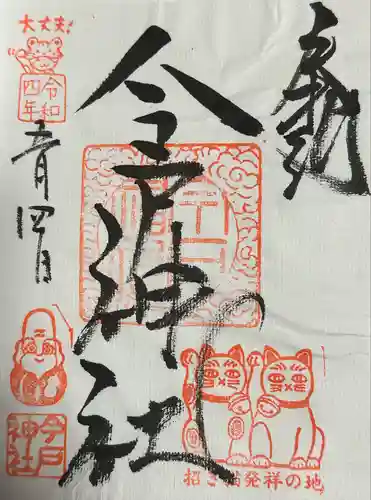 奉拝
今戸神社
大丈夫!
令和
四年
月四日
今戸
神社
招き猫発祥の地